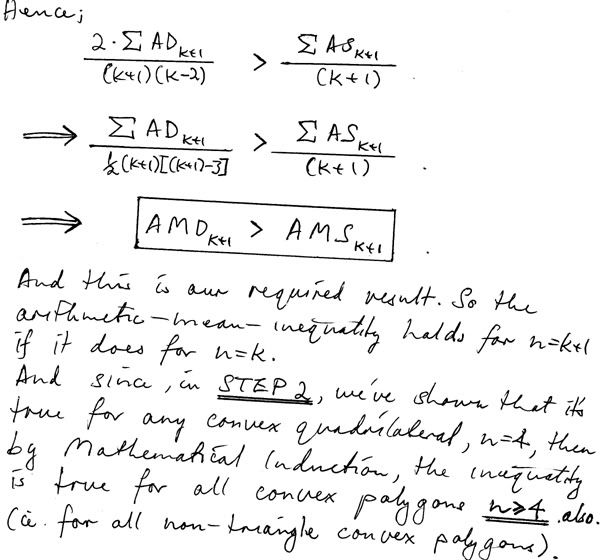 Hence;
2·∑AD_{k+1} / (k+1)(k-2) > ∑AS_{k+1} / (k+1)
⟹ ∑AD_{k+1} / ½(k+1)[(k+1)-3] > ∑AS_{k+1} / (k+1) .
⟹ AMD_{k+1} > AMS_{k+1} .
And this is our required result. So the
arithmetic-mean-inequality holds for n=k+1
if it does for n=k.
And since, in STEP 2, we've shown that it's
true for any convex quadrilateral, n=4, then
by Mathematical Induction, the inequality
is true for all convex polygons n≥4 also.
(i.e. for all non-triangle convex polygons).